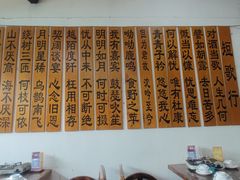 短歌行
对酒当歌 人生几何
譬如朝露 去日苦多
慨当以慷 忧思难忘
何以解忧 唯有杜康
青青子衿 悠悠我心
但为君故 沉吟至今
呦呦鹿鸣 食野之苹
我有嘉宾 鼓瑟吹笙
明明如月 何时可掇
忧从中来 不可断绝
越陌度阡 枉用相存
契阔谈宴 心念旧恩
月明星稀 乌鹊南飞
绕树三匝 何枝可依
山不厌高 海不厌深